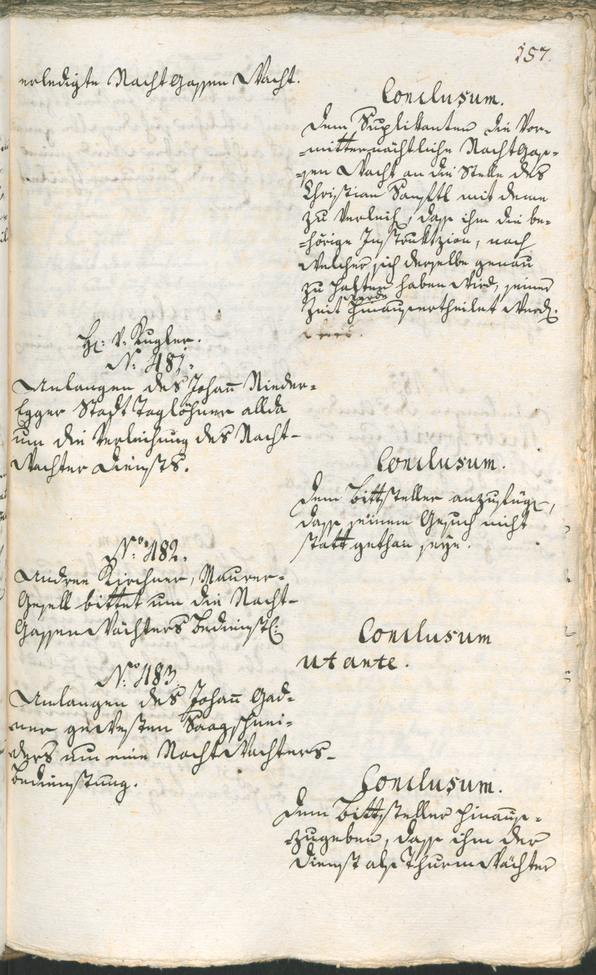 157.
erledigte Nacht Gassen Wacht.
Conclusum.
dem Suplikanten die Vor-
-mitternächtliche Nacht Gas-
-sen Wacht an die Stelle des
Christian mit deme
zu Verleih, dass ihm die be-
-hörige Instrukzion, nach
Welcher sich derselbe genau
zu halten haben wird, seiner
Zeit hinausertheilet werde
H: v: Kugler.
N: 481.
Anlangen des Johann Nieder-
Egger Stadt Taglöhner allda
um die Verleihung des Nacht-
Wachter Diensts.
Conclusum.
dem Bittsteller anzufügen,
dass seinem Gesuch nicht
statt gethan seye.
N:o 482.
Andree Kirchner, Maurer-
Gesell bittet um die Nacht-
Gassen Wächters Bedienst:
Conclusum
ut ante.
N:o 483.
Anlangen des Johann Gad-
ner gewesten Saagschnei-
ders um eine Nacht Wachters-
Bedienstung.
Conclusum.
dem Bittsteller hinaus-
-zugeben, dass ihm der
Dienst als Thurm Wächter